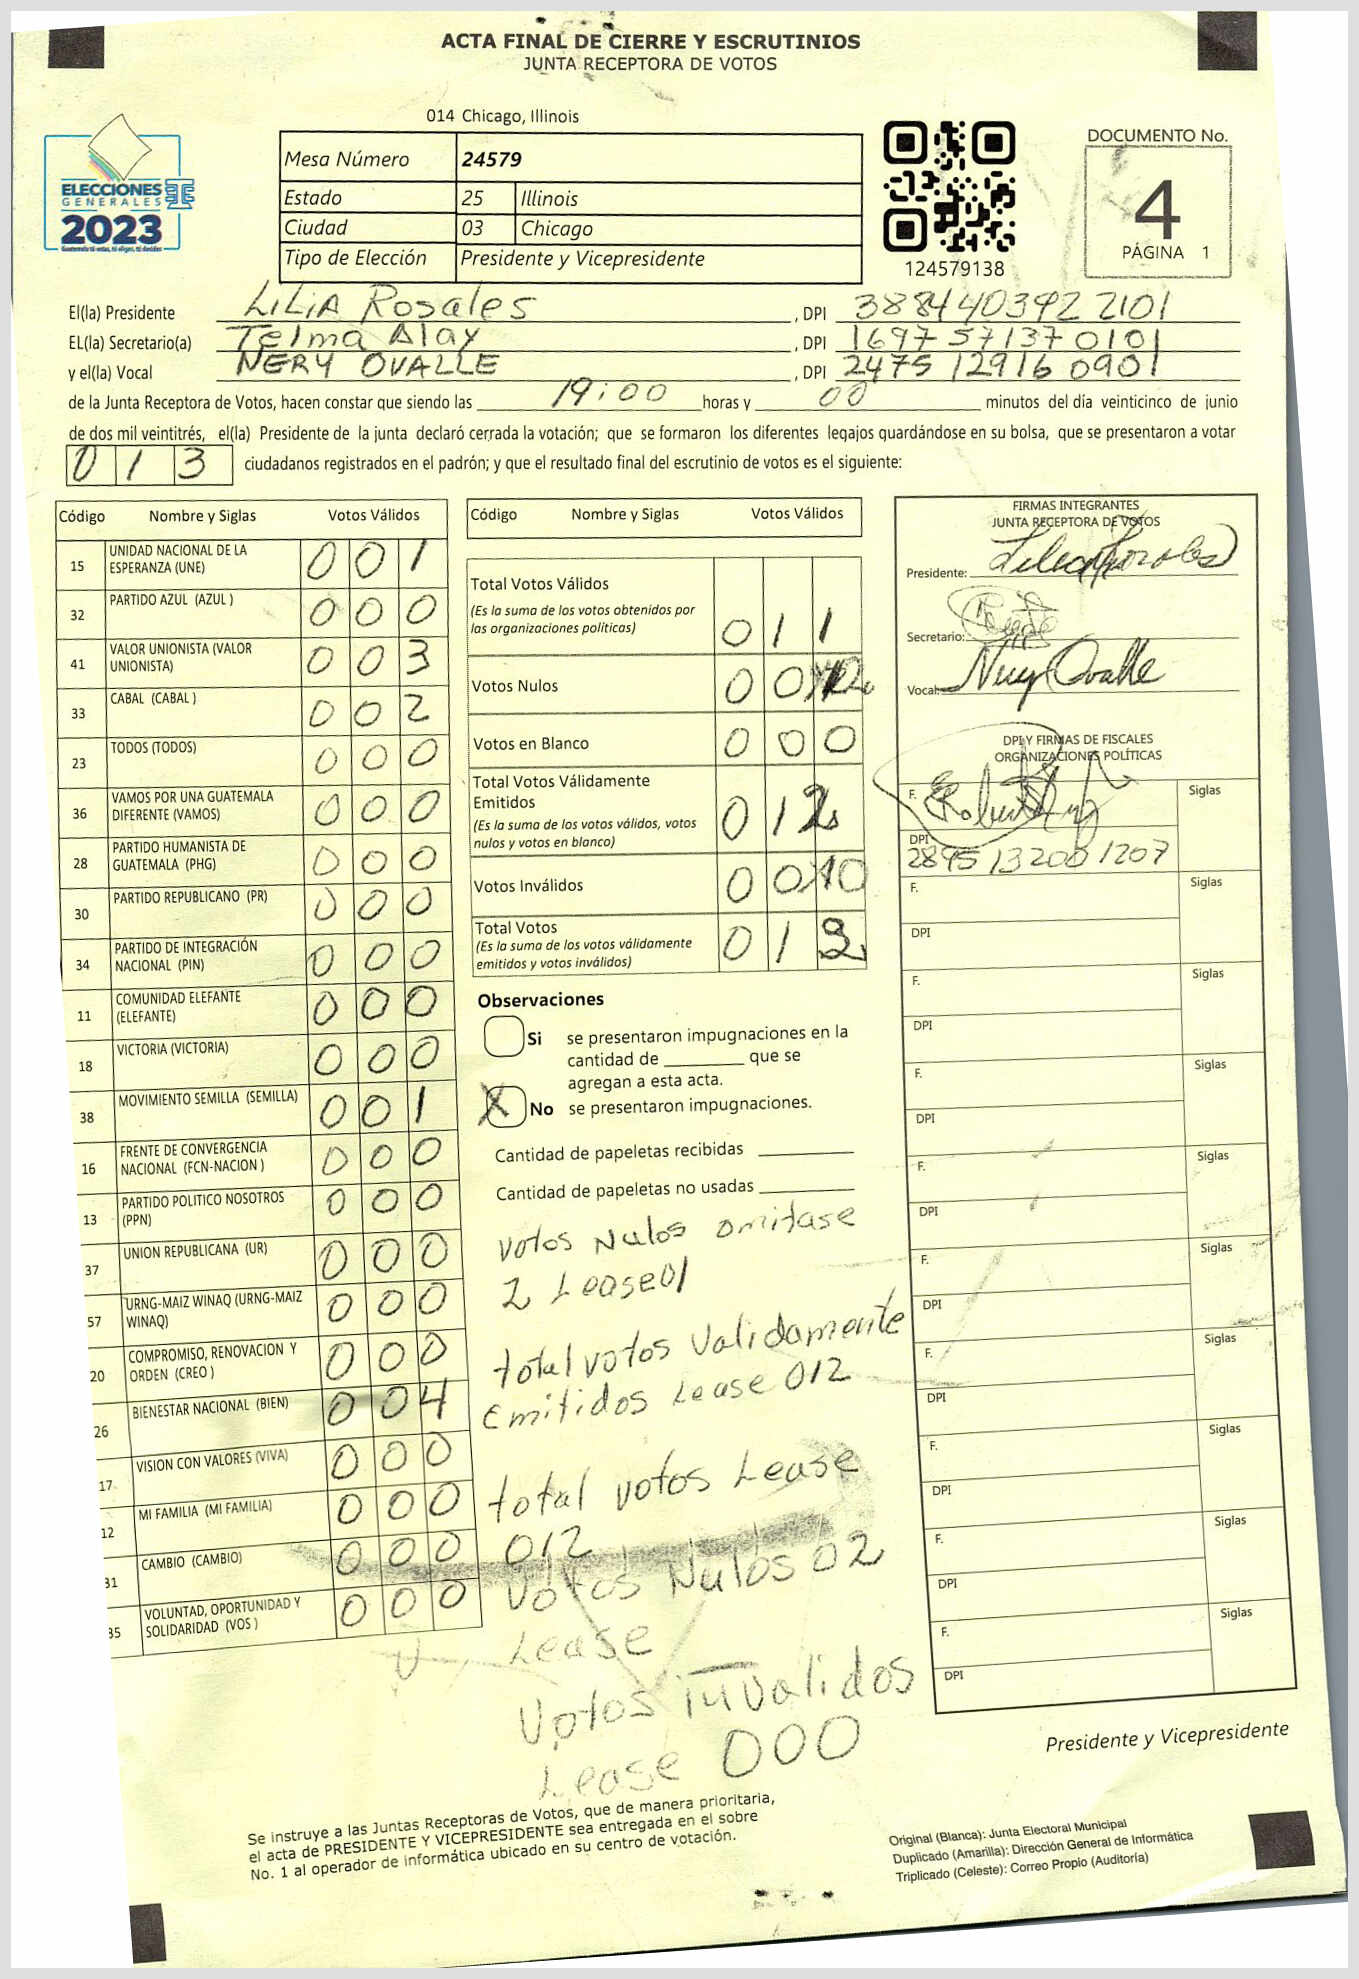 ACTA FINAL DE CIERRE Y ESCRUTINIOS
JUNTA RECEPTORA DE VOTOS
014 Chicago, Illinois
ELECCIONES
GENERALES
2023
Mesa Número 24579
Estado 25 Illinois
Ciudad 03 Chicago
Tipo de Elección Presidente y Vicepresidente
124579138
DOCUMENTO No.
4
PÁGINA 1
El(la) Presidente LiLiA Rosales , DPI 3884403922101
EL(la) Secretario(a) Telma Alay , DPI 1697 57137 0101
y el(la) Vocal NERY OVALLE , DPI 2475 12916 0901
de la Junta Receptora de Votos, hacen constar que siendo las 19:00 horas y 00 minutos del día veinticinco de junio
de dos mil veintitrés, el(la) Presidente de la junta declaró cerrada la votación; que se formaron los diferentes legajos guardándose en su bolsa, que se presentaron a votar
013 ciudadanos registrados en el padrón; y que el resultado final del escrutinio de votos es el siguiente:
Código Nombre y Siglas Votos Válidos
15 UNIDAD NACIONAL DE LA ESPERANZA (UNE) 001
32 PARTIDO AZUL (AZUL ) 000
41 VALOR UNIONISTA (VALOR UNIONISTA) 003
33 CABAL (CABAL ) 002
23 TODOS (TODOS) 000
36 VAMOS POR UNA GUATEMALA DIFERENTE (VAMOS) 000
28 PARTIDO HUMANISTA DE GUATEMALA (PHG) 000
30 PARTIDO REPUBLICANO (PR) 000
34 PARTIDO DE INTEGRACIÓN NACIONAL (PIN) 000
11 COMUNIDAD ELEFANTE (ELEFANTE) 000
18 VICTORIA (VICTORIA) 000
38 MOVIMIENTO SEMILLA (SEMILLA) 001
16 FRENTE DE CONVERGENCIA NACIONAL (FCN-NACION ) 000
13 PARTIDO POLITICO NOSOTROS (PPN) 000
37 UNION REPUBLICANA (UR) 000
57 URNG-MAIZ WINAQ (URNG-MAIZ WINAQ) 000
20 COMPROMISO, RENOVACION Y ORDEN (CREO ) 000
26 BIENESTAR NACIONAL (BIEN) 004
17 VISION CON VALORES (VIVA) 000
12 MI FAMILIA (MI FAMILIA) 000
31 CAMBIO (CAMBIO) 000
35 VOLUNTAD, OPORTUNIDAD Y SOLIDARIDAD (VOS ) 000
Código Nombre y Siglas Votos Válidos
Total Votos Válidos 011
(Es la suma de los votos obtenidos por
las organizaciones políticas)
Votos Nulos 00
Votos en Blanco 000
Total Votos Válidamente
Emitidos 012
(Es la suma de los votos válidos, votos
nulos y votos en blanco)
Votos Inválidos 00
Total Votos 01
(Es la suma de los votos válidamente
emitidos y votos inválidos)
Observaciones
Si se presentaron impugnaciones en la
cantidad de ________ que se
agregan a esta acta.
X No se presentaron impugnaciones.
Cantidad de papeletas recibidas
Cantidad de papeletas no usadas
votos Nulos omitase
2 Lease01
total votos Validamente
Emitidos Lease 012
total votos Lease
012
Votos Nulos 02
Lease
Votos inValidos
Lease 000
FIRMAS INTEGRANTES
JUNTA RECEPTORA DE VOTOS
Presidente:
Secretario:
Vocal: Nery Ovalle
DPI Y FIRMAS DE FISCALES
ORGANIZACIONES POLÍTICAS
F. Siglas
DPI 2895 13200 1207
F. Siglas
DPI
F. Siglas
DPI
F. Siglas
DPI
F. Siglas
DPI
F. Siglas
DPI
F. Siglas
DPI
F. Siglas
DPI
F. Siglas
DPI
F. Siglas
DPI
Presidente y Vicepresidente
Se instruye a las Juntas Receptoras de Votos, que de manera prioritaria,
el acta de PRESIDENTE Y VICEPRESIDENTE sea entregada en el sobre
No. 1 al operador de informática ubicado en su centro de votación.
Original (Blanca): Junta Electoral Municipal
Duplicado (Amarilla): Dirección General de Informática
Triplicado (Celeste): Correo Propio (Auditoría)